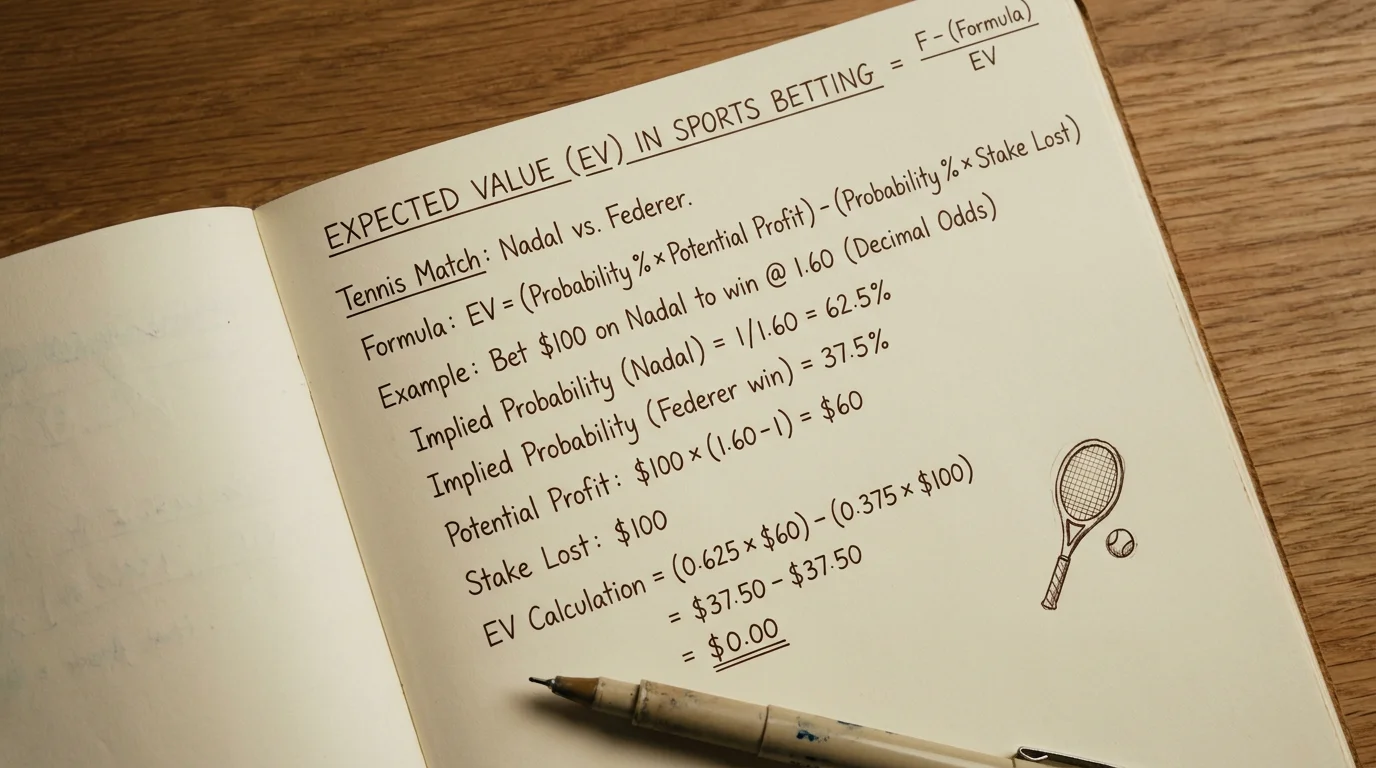 EXPECTED VALUE (EV) IN SPORTS BETTING = F - (Formula) / EV
Tennis Match: Nadal vs. Federer.
Formula: EV = (Probability % × Potential Profit) - (Probability % × Stake Lost)
Example: Bet $100 on Nadal to win @ 1.60 (Decimal Odds)
Implied Probability (Nadal) = 1/1.60 = 62.5%
Implied Probability (Federer win) = 37.5%
Potential Profit: $100 × (1.60-1) = $60
Stake Lost: $100
EV Calculation = (0.625 × $60) - (0.375 × $100)
= $37.50 - $37.50
= $0.00